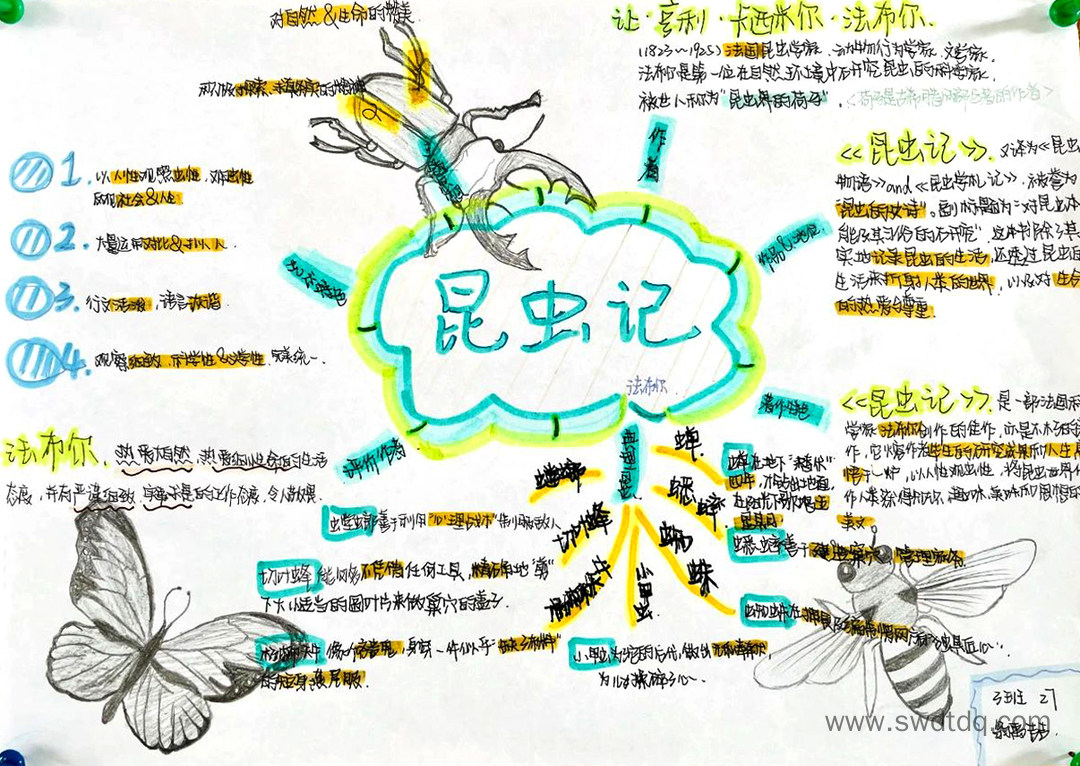 对自然&生命的赞美
积极探索、求真务实的精神
让·亨利·卡西米尔·法布尔
(1823~1925)法国昆虫学家、动物行为学家、文学家。
法布尔是第一位在自然环境中研究昆虫的科学家,
被世人称为"昆虫界的荷马"。
作者
《昆虫记》又译为《昆虫
物语》and《昆虫学札记》,被誉为
"昆虫的史诗"。副标题为:对昆虫本
能及其习俗的研究"。这本书除了真
实地记录昆虫的生活,还透过昆虫的
生活来折射人类的世界,以及对生命
的热爱与尊重.
作品&地位
1. 以人性观照虫性,对虫性
反观社会&人生
2. 大量运用对比&拟人
3. 行文活泼,语言诙谐
4. 观察细致,科学性&文学性完美统一.
艺术特色
昆虫记
法布尔
著作特色
《昆虫记》是一部法国科
学家法布尔创作的佳作,亦是不朽的
作,它熔作者毕生的研究成果和人生
悟于一炉,以人性观虫性,将昆虫世界化
美文
评价作者
法布尔,热爱自然、热爱细小生命的生活
态度,并有严谨细致、实事求是的工作态度,令人敬佩.
典型昆虫
蝉
蟋蟀
蜘蛛
小甲虫
切叶蜂
蝉在地下"潜伏"
四年,才能钻出地面,
在阳光下歌唱五
星期
蟋蟀善于建造巢穴、管理家务
切叶蜂能够不凭借任何工具,精确地"剪"
下大小适当的圆叶片来做巢穴的盖子.
小甲虫为它的后代,做出无私奉献,
为儿女操碎了心.
的短身燕尾服.
班 27
www.swdtdq.com